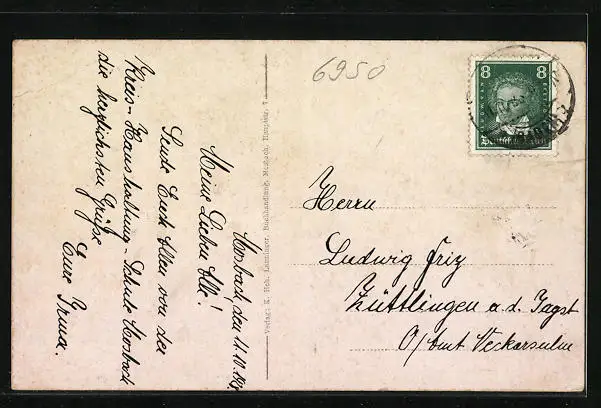 6950
8 8
Deutsches Reich
Mosbach den 11.10.
Meine Lieben Alle!
Sende Euch Allen von der
Kreis-Haushaltung-Schule Mosbach
die herzlichsten Grüße
Eure Irma.
Verlag: K. Hch. Lenninger, Buchhandlung, Mosbach, Hauptstr. 7
Herrn
Ludwig Friz
Züttlingen a. d. Jagst
O/Amt Neckarsulm